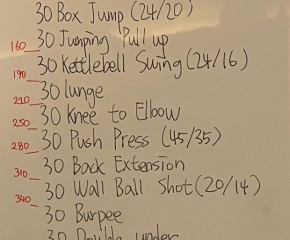 30 Box Jump (24/20)
30 Jumping Pull up
160
30 Kettlebell Swing (24/16)
190
30 lunge
220
30 Knee to Elbow
250
30 Push Press (45/35)
280
30 Back Extension
310
30 Wall Ball Shot (20/14)
340
30 Burpee
30 Double under